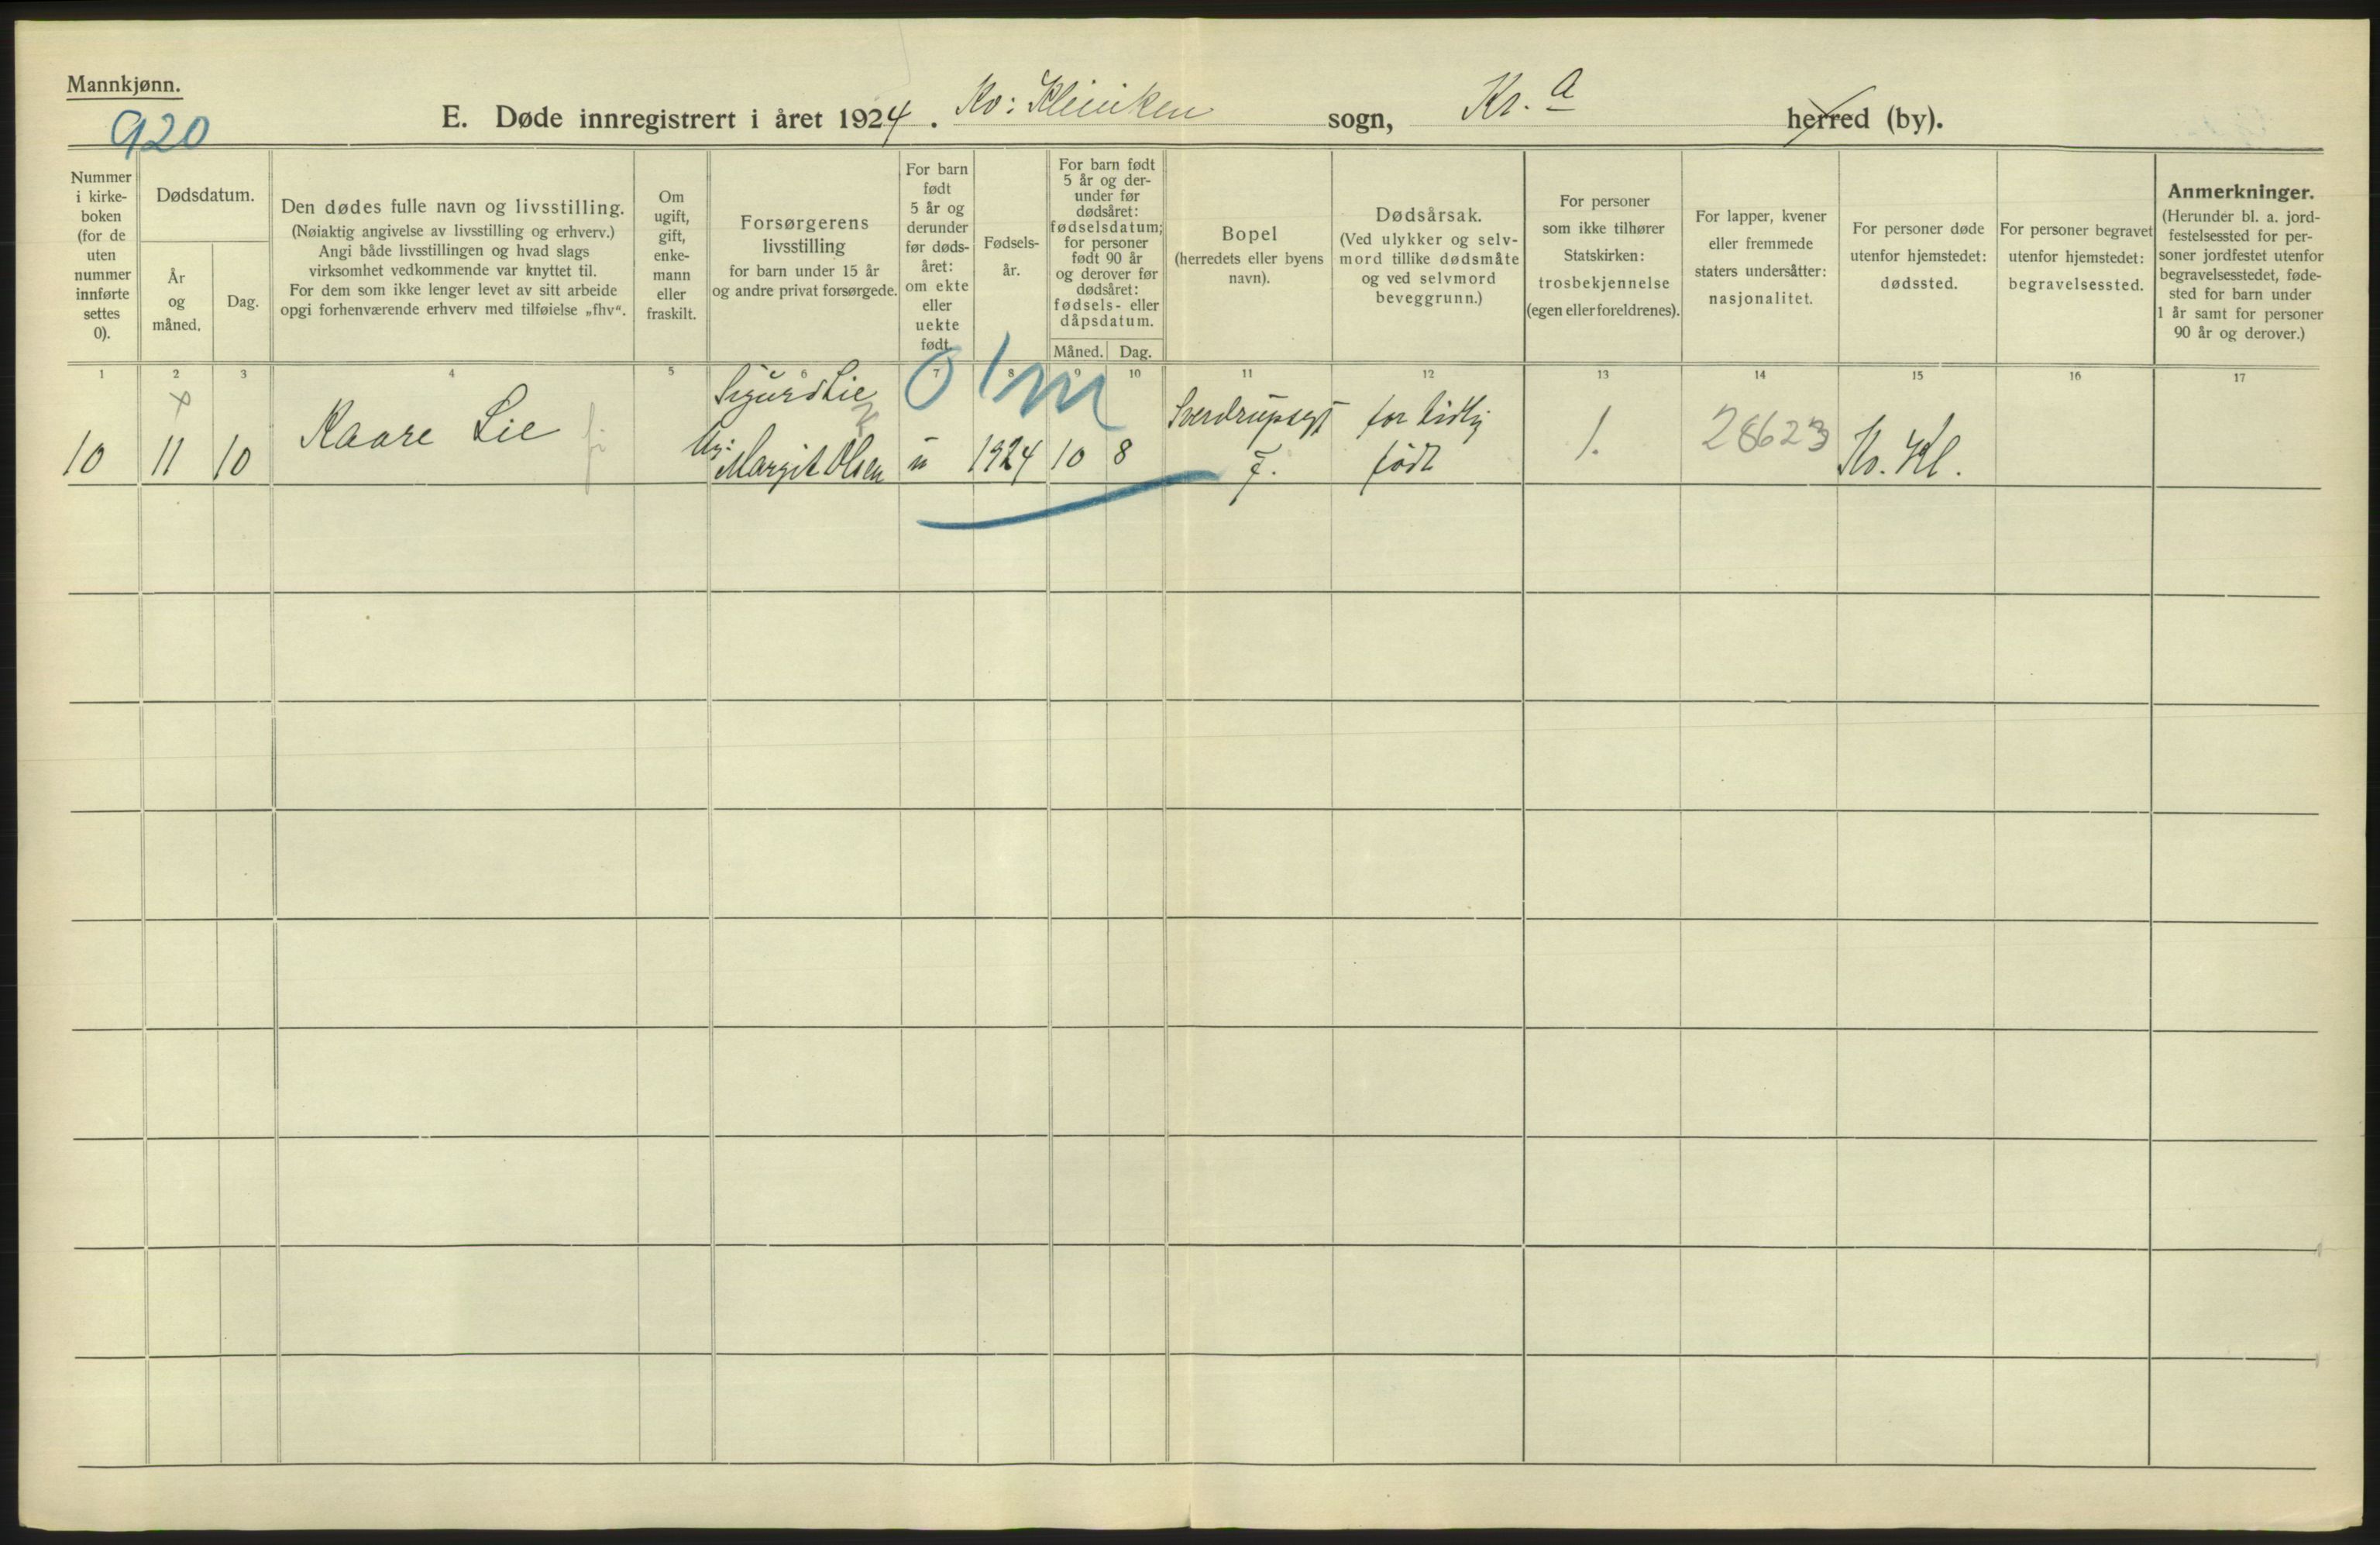 Mannkjønn.
920
E. Døde innregistrert i året 1924. Kv: Kliniken sogn, Kr.a herred (by).
Nummer
i kirke-
boken
(for de
uten
nummer
innførte
settes
0).
Dødsdatum.
År
og
måned.
Dag.
Den dødes fulle navn og livsstilling.
(Nøiaktig angivelse av livsstilling og erhverv.)
Angi både livsstillingen og hvad slags
virksomhet vedkommende var knyttet til.
For dem som ikke lenger levet av sitt arbeide
opgi forhenværende erhverv med tilføielse „fhv“.
Om
ugift,
gift,
enke-
mann
eller
fraskilt.
Forsørgerens
livsstilling
for barn under 15 år
og andre privat forsørgede.
For barn
født
5 år og
derunder
før døds-
året:
om ekte
eller
uekte
født.
Fødsels-
år.
For barn født
5 år og der-
under før
dødsåret:
fødselsdatum;
for personer
født 90 år
og derover før
dødsåret:
fødsels- eller
dåpsdatum.
Måned.
Dag.
Bopel
(herredets eller byens
navn).
Dødsårsak.
(Ved ulykker og selv-
mord tillike dødsmåte
og ved selvmord
beveggrunn.)
For personer
som ikke tilhører
Statskirken:
trosbekjennelse
(egen eller foreldrenes).
For lapper, kvener
eller fremmede
staters undersåtter:
nasjonalitet.
For personer døde
utenfor hjemstedet:
dødssted.
For personer begravet
utenfor hjemstedet:
begravelsessted.
Anmerkninger.
(Herunder bl. a. jord-
festelsessted for per-
soner jordfestet utenfor
begravelsesstedet, føde-
sted for barn under
1 år samt for personer
90 år og derover.)
1 2 3 4 5 6 7 8 9 10 11 12 13 14 15 16 17
0 1 m
10
11
10
Kaare Lie
Sigurd Lie
Ug. Margit Olsen
u
1924
10
8
Sverdrupsgt
7.
for tidlig
født
1.
28623
Kv. Kl.